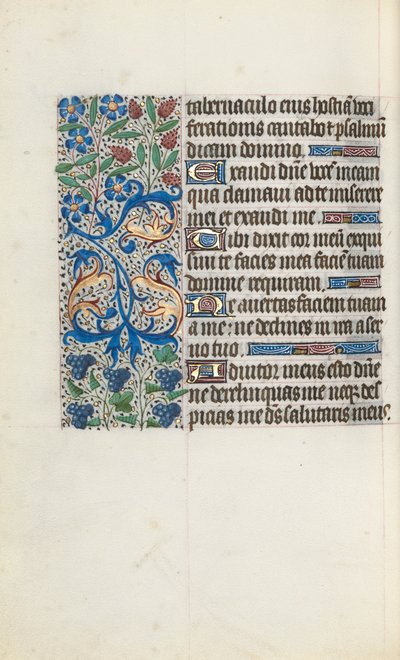 tabernaculo eius hostiā voci
ferationis cantabo et psalmū
dicam domino.
Exaudi dn̄e vocē meam
qua clamaui ad te miserere
mei et exaudi me.
Tibi dixit cor meū exqui
siuit te facies mea faciē tuam
domine requiram.
Ne auertas faciem tuam
a me: ne declines in ira a ser
uo tuo.
Adiutor meus esto dn̄e
ne derelinquas me neqꝫ des
picias me ds̄ salutaris meus.